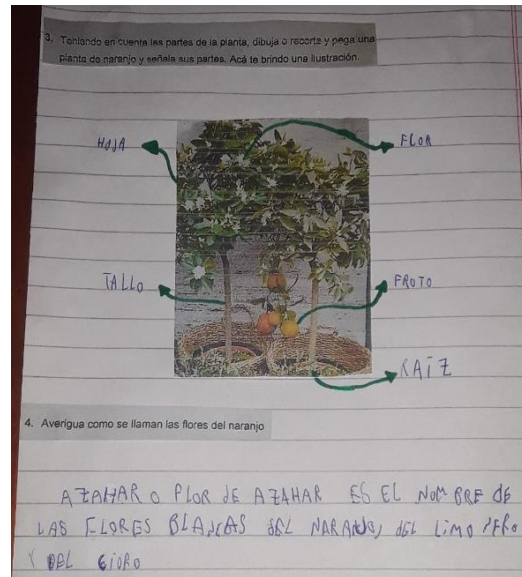 3. Teniendo en cuenta las partes de la planta, dibuja o recorta y pega una
planta de naranjo y señala sus partes. Acá te brindo una ilustración.
HOJA
FLOR
TALLO
FRUTO
RAIZ
4. Averigua como se llaman las flores del naranjo
AZAHAR O FLOR DE AZAHAR ES EL NOMBRE DE
LAS FLORES BLANCAS DEL NARANJO, DEL LIMONERO
Y DEL CIDRO